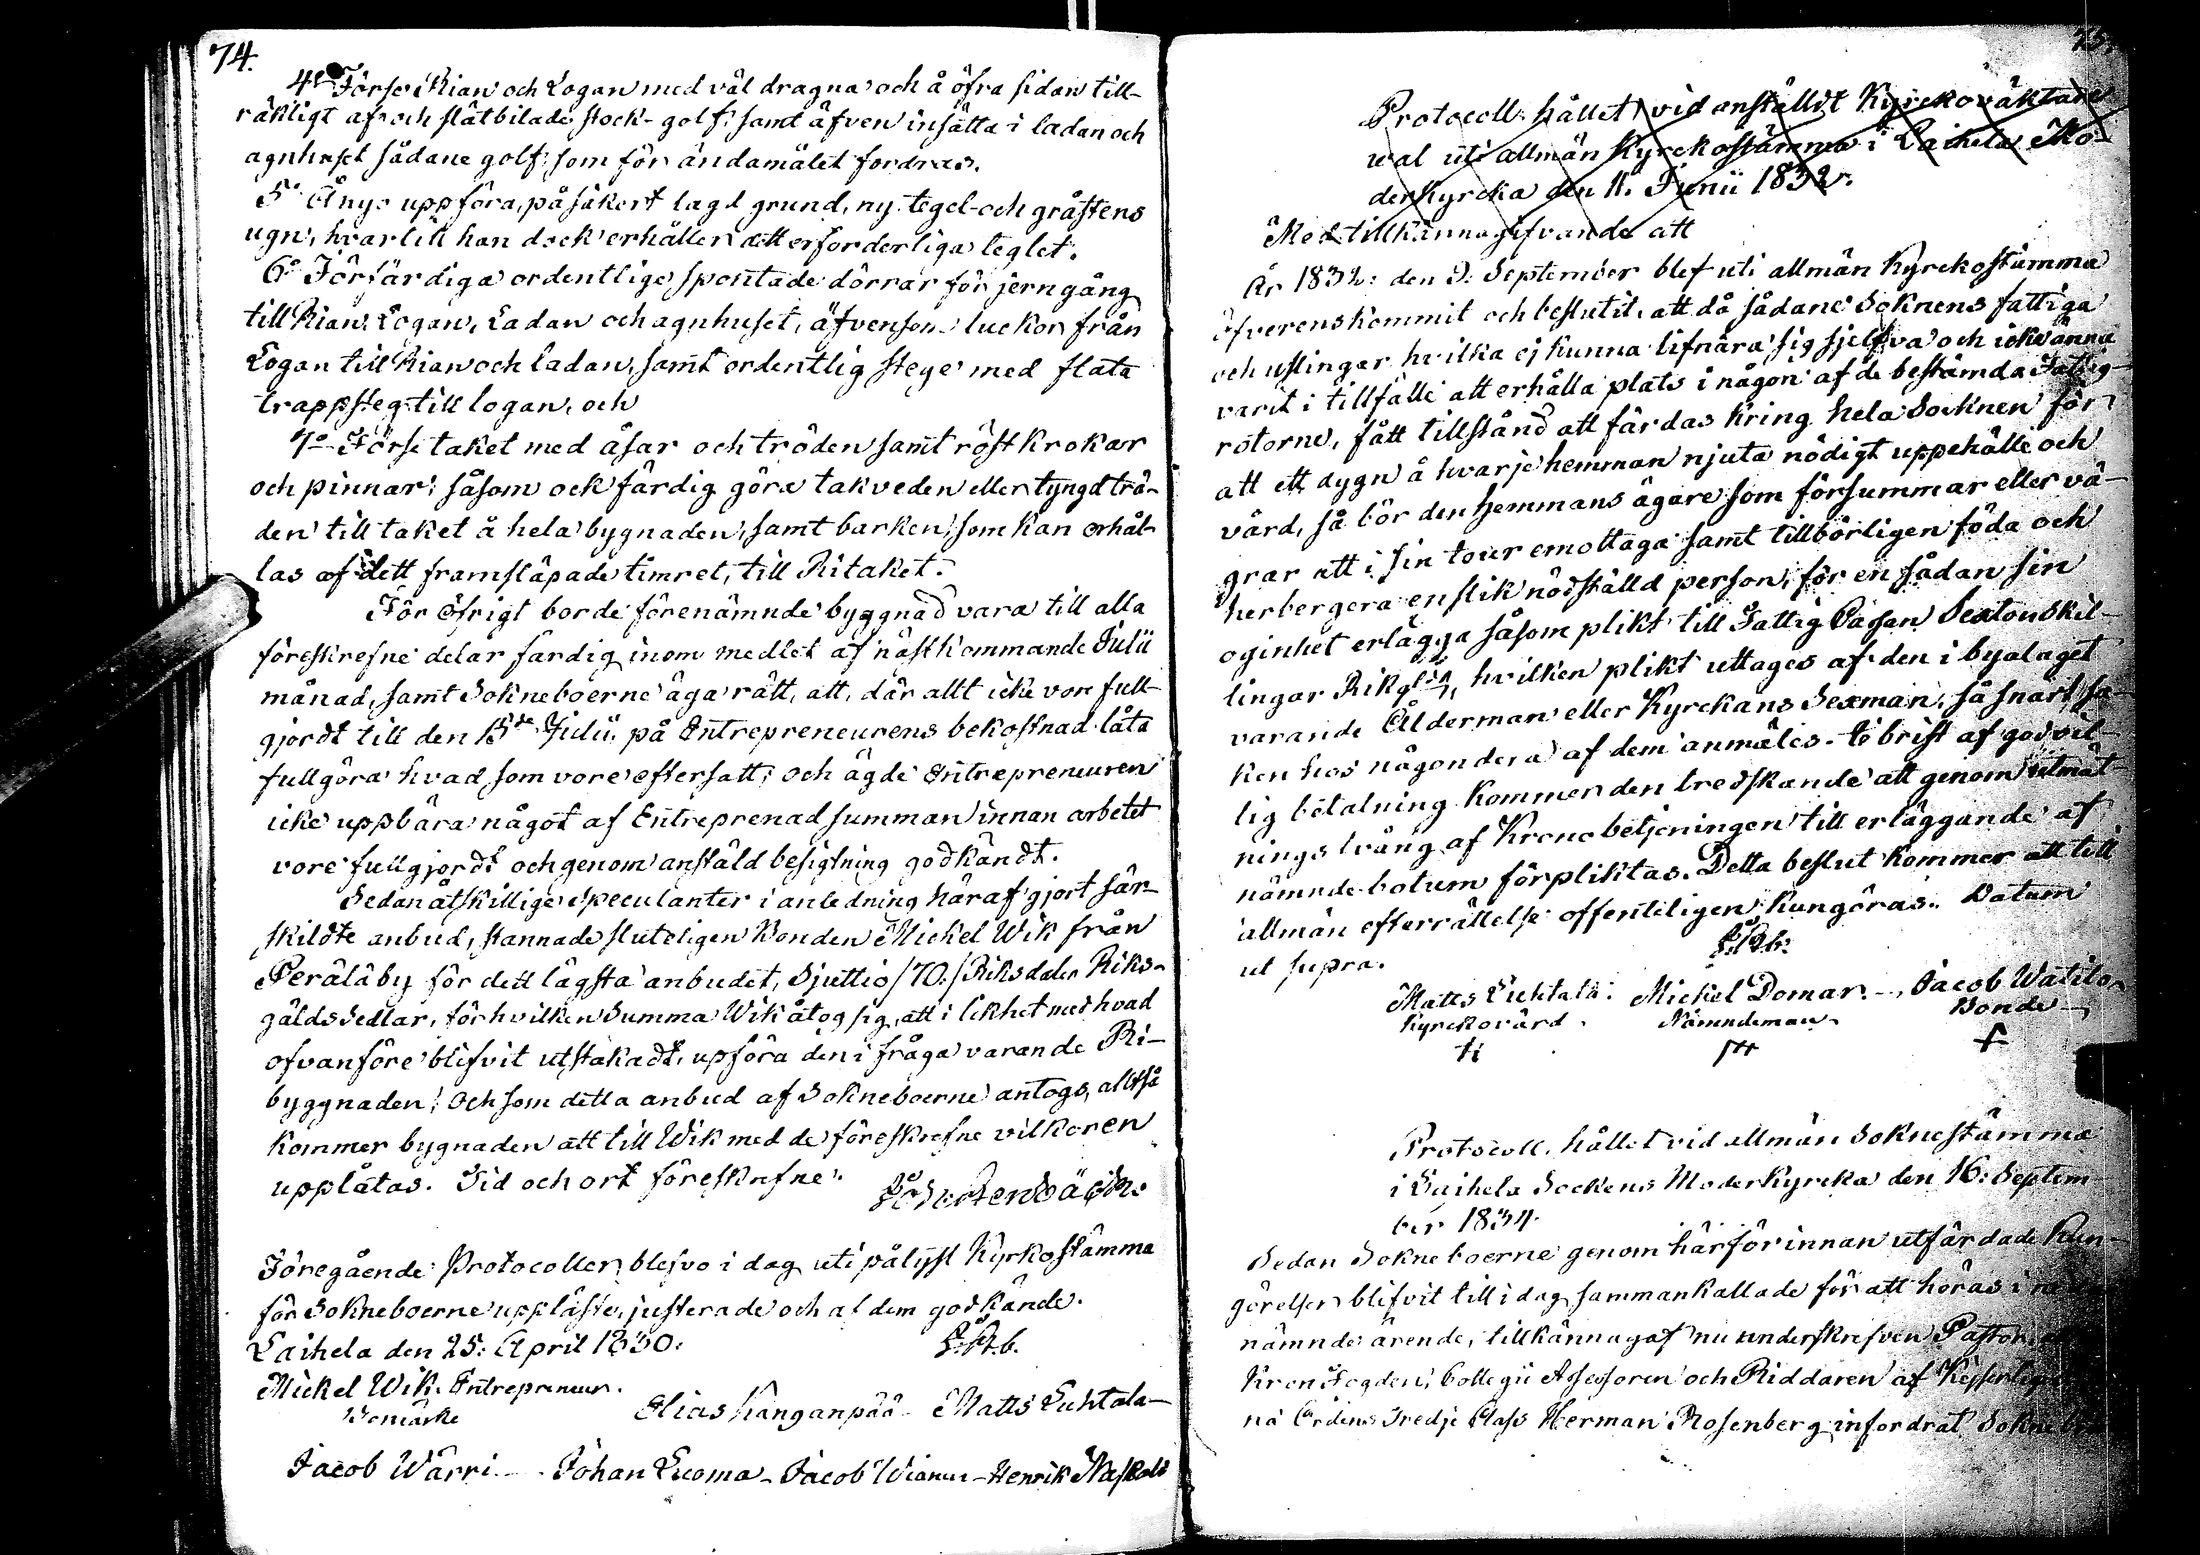 74.
4o Förse Rian och Logan med väl dragna och å öfra sidan till-
räkligt af och slätbilade stock-golf, samt äfven insätta i ladan och
agnhuset sådane golf, som för ändamålet fordras.
5o Å nyo uppföra, på säkert lagd grund, ny tegel- och gråstens
ugn, hvartill han dock erhåller det erforderliga teglet.
6o Förfärdiga ordentliga spontade dörrar för jerngång
till Rian, Logan, Ladan och agnhuset, äfvensom luckor från
Logan till Rian och ladan, samt ordentlig stege med flata
trappsteg till logan, och
7o Förse taket med åsar och tröden samt röstkrokar
och pinnar; såsom ock färdig göra takveden eller tyngdträ-
den till taket å hela bygnaden, samt barken, som kan erhål-
las af dett framsläpade timret, till Ritaket.
För öfrigt borde förenämnde byggnad vara till alla
föreskrefne delar färdig inom medlet af nästkommande Julii
månad, samt Sokneboerne äga rätt, att, där allt icke vore full-
gjordt till den 15de Julii, på Entrepreneurens bekostnad låta
fullgöra hvad som vore eftersatt; och ägde Entrepreneuren
icke uppbära något af Entreprenad summan innan arbetet
vore fullgjordt och genom anstäld besigtning godkändt.
Sedan åtskillige Speculanter i anledning häraf gjort sär-
skildte anbud, stannade sluteligen Bonden Mickel Wik från
Perälä by för dett lägsta anbudet, Sjuttio /70./ Riksdaler Riks-
gälds Sedlar, för hvilken Summa Wik åtog sig, att i likhet med hvad
ofvanföre blifvit utstakadt, upföra den i fråga varande Ri-
byggnaden; Och som detta anbud af Sokneboerne antogs, alltså
kommer bygnaden att till Wik med de föreskrefne vilkoren
upplåtas. Tid och ort föreskrefne.
Föregående Protocoller blefvo i dag uti pålyst Kyrkostämma
för Sokneboerne uppläste, justerade och af dem godkände.
Laihela den 25: April 1830.
Mickel Wik. Entrepreneur.
Bomärke
Elias Kanganpää - Matts Luhtala-
Jacob Wärri - Johan Luoma - Jacob Wianus - Henrik
75.
Protocoll, hållet vid anställdt Kyrckoväktare
wal uti allmän Kyrckostämma i Laihela Mo-
derkyrcka den 11. Junii 1832.
Med tillkännagifvande att
År 1832: den 9. September blef uti allmän Kyrckostämma
öfverenskommit och beslutit, att då sådane Soknens fattiga
och uslingar hvilka ej kunna lifnära sig sjelfva och icke ännu
varit i tillfälle att erhålla plats i någon af de bestämda Fattig-
rotorne, fått tillstånd att färdas kring hela Socknen för
att ett dygn å hvarje hemman njuta nödigt uppehälle och
vård, så bör den hemmans ägare som försummar eller vä-
grar att i sin tour emottaga samt tillbörligen föda och
herbergera en slik nödstälid person, för en sådan sin
oginhet erlägga såsom plikt till Fattig Cassan Sexton skil-
lingar Riksgld, hvilken plikt uttages af den i byalaget
varande Ålderman eller Kyrckans Sexman, så snart sa-
ken hos någondera af dem anmäles. I brist af godvil-
lig betalning kommer den tredskande att genom utmät-
nings tvång af Kronobetjeningen till erläggande af
nämnde botum förpliktas. Detta beslut kommer att till
allmän efterrättelse offenteligen kungöras. Datum
ut supra.
Matts Luhtala. Mickel Domar. -, Jacob Watilo
Kyrckovärd. Nämndeman Bonde
Protocoll, hållet vid allmän Soknestämma
i Laihela Sockens Moderkyrcka den 16: Septem-
ber 1834.
Sedan Sokneboerne genom härförinnan utfärdade Kun-
görelser blifvit till i dag sammankallade för att höras i
nämnde ärende, tillkännagaf nu underskrefven Pastor
Kron Fogden, Collegii Assessoren och Riddaren af Kejserliga
na Ordens Tredje Class Herman Rosenberg infordrat Sokne